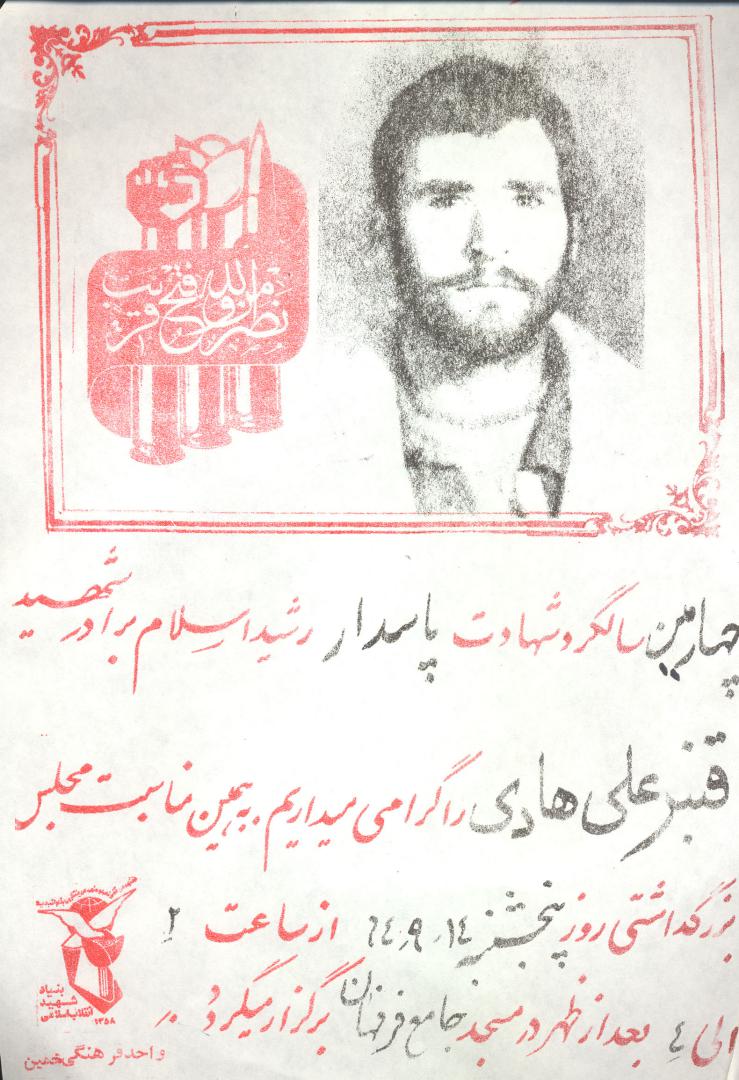 نصر من الله و فتح قریب
چهارمین سالگرد شهادت پاسدار رشید اسلام برادر شهید
قنبر علی هادی را گرامی میداریم. به همین مناسبت مجلس
بزرگداشتی روز پنجشنبه ۶٤٫۹٫۱٤ از ساعت ۲
الی ٤ بعد از ظهر در مسجد جامع فرفهان برگزار میگردد
بنیاد
شهید
انقلاب اسلامی
۱۳۵۸
واحد فرهنگی خمین